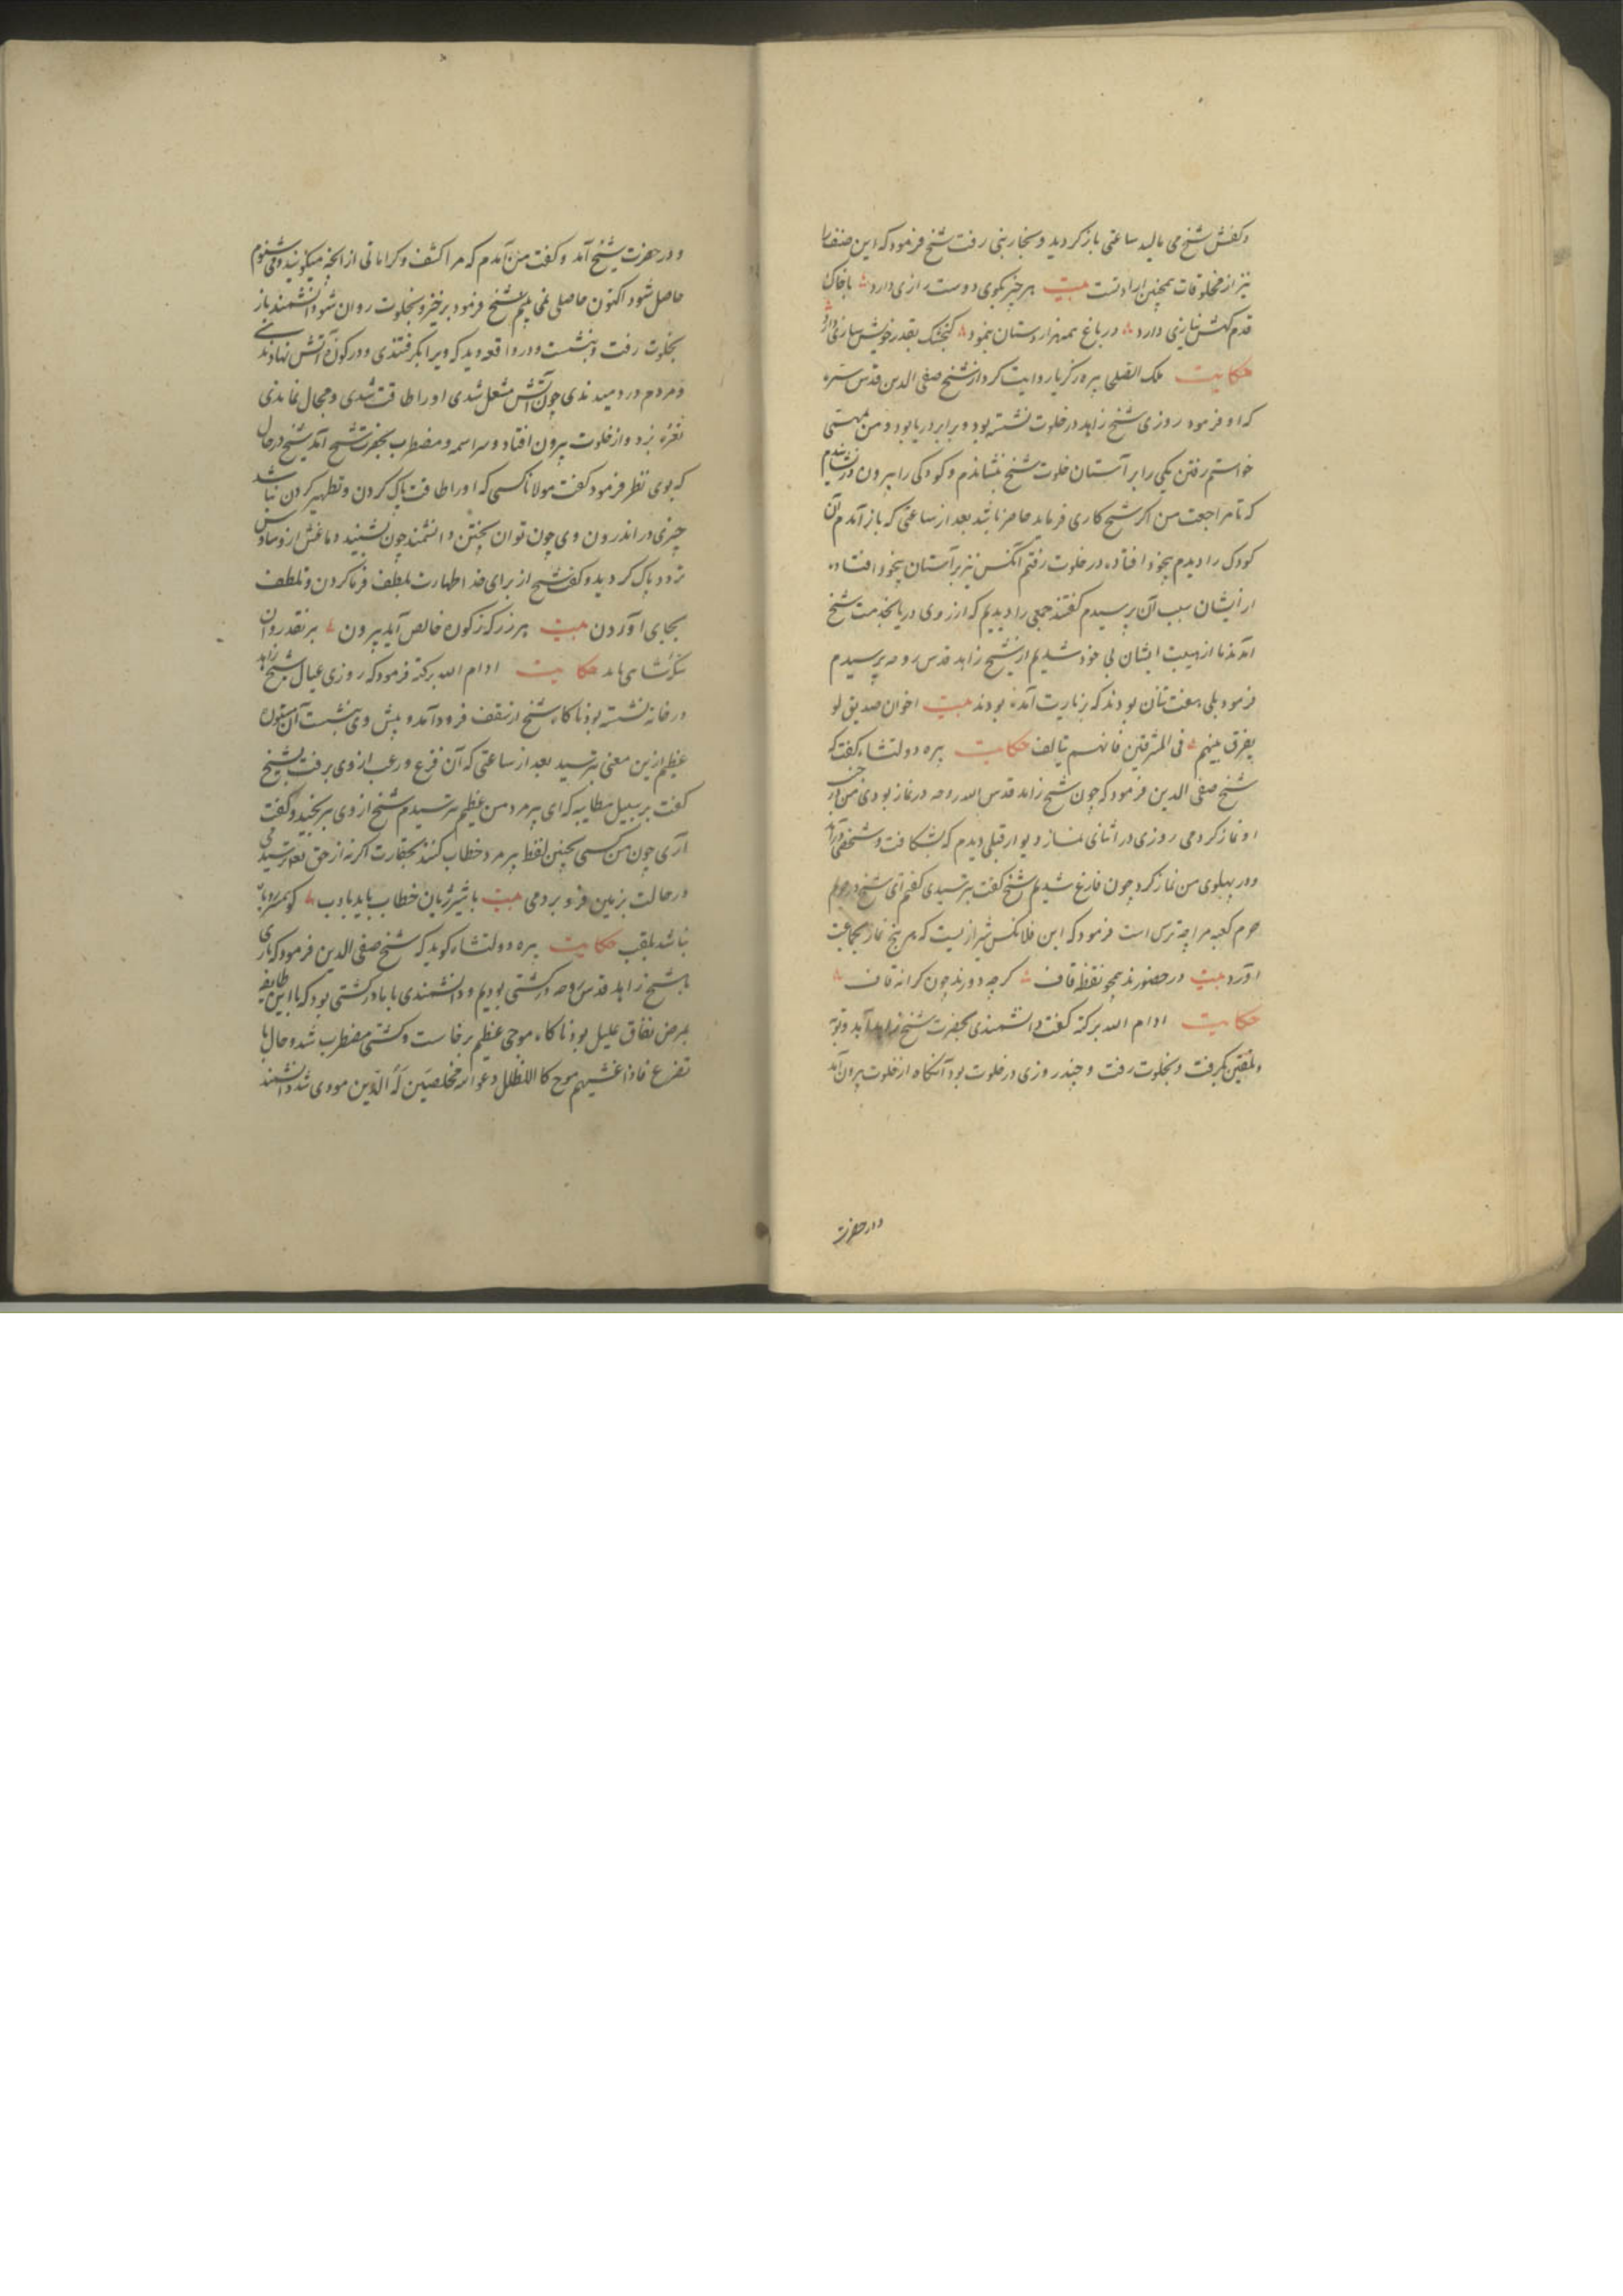 و کفش شیخ می مالید ساعتی باز کردید و بخار بنی رفت شیخ فرمود که این صنف را
نیز از مخلوقات همچنین ارادتست بیت هر چیز بکوی دوست رازی دارد با خاک
قدم کهش نیازی دارد در باغ همه هزار دستان نبود کنجشک بقدر خویش سازی دارد
حکایت ملک القبلی پیره زکریا روایت کرد از شیخ صفی الدین قدس سره
که او فرمود روزی شیخ زاهد در خلوت نشسته بود و برابر دریا بود و من بمهمی
خواستم رفتن یکی را بر آستان خلوت شیخ بنشاندم و کودکی را بیرون در نشاندم
که تا مراجعت من اکر شیخ کاری فرماید حاضر باشد بعد از ساعتی که باز آمدم آن
کودک را دیدم بیخود افتاده در خلوت رفتم آنکس نیز بر آستان بیخود افتاده
از ایشان سبب آن پرسیدم کفتند جمعی را دیدیم که از روی دریا بخدمت شیخ
آمدند ما از هیبت ایشان بی خود شدیم از شیخ زاهد قدس روحه پرسیدم
فرمود بلی هفت تنان بودند که بزیارت آمده بودند بیت اخوان صدیق لو
یفرق بینهم فی المشرقین فانهم تالف حکایت پیره دولتشاه کفت که
شیخ صفی الدین فرمود که چون شیخ زاهد قدس الله روحه در نماز بودی من در جنب
او نماز کردمی روزی در اثنای نماز دیوار قبلی دیدم که بشکافت و شخصی درآمد
و در پهلوی من نماز کرد چون فارغ شدیم شیخ کفت بترسیدی کفتم ای شیخ در حرم
حرم کعبه مرا چه ترس است فرمود که این فلانکس شیرازیست که هر پنج نماز بجماعت
آورد بیت در حضورند همچو نقطه قاف کر چه دورند چون کرانه قاف
حکایت ادام الله برکته کفت دانشمندی بحضرت شیخ زاهد آمد و توبه
و تلقین بکرفت و بخلوت رفت و چند روزی در خلوت بود آنکاه از خلوت بیرون آمد
و در حضرت
و در حضرت شیخ آمد و کفت من آمدم که مرا کشف و کراماتی از آنچه میکویند و می شنوم
حاصل شود اکنون حاصلی نمی بینم شیخ فرمود برخیز و بخلوت روان شو دانشمند باز
بخلوت رفت و بنشست و در واقعه دید که ویرا بکرفتندی و در کوره آتش نهادندی
و مردم در دمیدندی چون آتش مشعل شدی او را طاقت شدی و مجال نماندی
نعره بزد و از خلوت بیرون افتاد و سراسمه و مضطرب بحضرت شیخ آمد شیخ در حال
که بوی نظر فرمود کفت مولانا کسی که او را طاقت پاک کردن و تطهیر کردن نباشد
چیزی در اندرون وی چون توان پختن دانشمند چون بشنید دماغش از وساوس
تردد پاک کردید و کفت شیخ از برای خدا طهارت بلطف فرما کردن و تلطف
بجای آوردن بیت هر زر که ز کوره خالص آید بیرون بر نقد روان
حکایت ادام الله برکته فرمود که روزی عیال شیخ زاهد
در خانه نشسته بود ناکاه شیخ از سقف فرود آمد و پیش وی بنشست آن ستوره
عظیم ازین معنی بترسید بعد از ساعتی که آن فزع و رعب از وی برفت بشیخ
کفت بر سبیل مطایبه که ای پیر مرد من عظیم بترسیدم شیخ از وی برنجید و کفت
آری چون من کسی بچنین لفظ پیر مرد خطاب کنند بحقارت اکر نه از حق تعالی ترسیدمی
در حالت بزمین فرو بردمی بیت با شیر ژیان خطاب باید بادب
نباشد بلقب حکایت پیره دولتشاه کوید که شیخ صفی الدین فرمود که باری
با شیخ زاهد قدس روحه در کشتی بودیم و دانشمندی با ما در کشتی بود که با این طایفه
بمرض نفاق علیل بود ناکاه موجی عظیم برخاست و کشتی مضطرب شد و حال با
تضرع فاذا غشیهم موج کا الظلل دعوا الله مخلصین له الدین مودی شد دانشمند